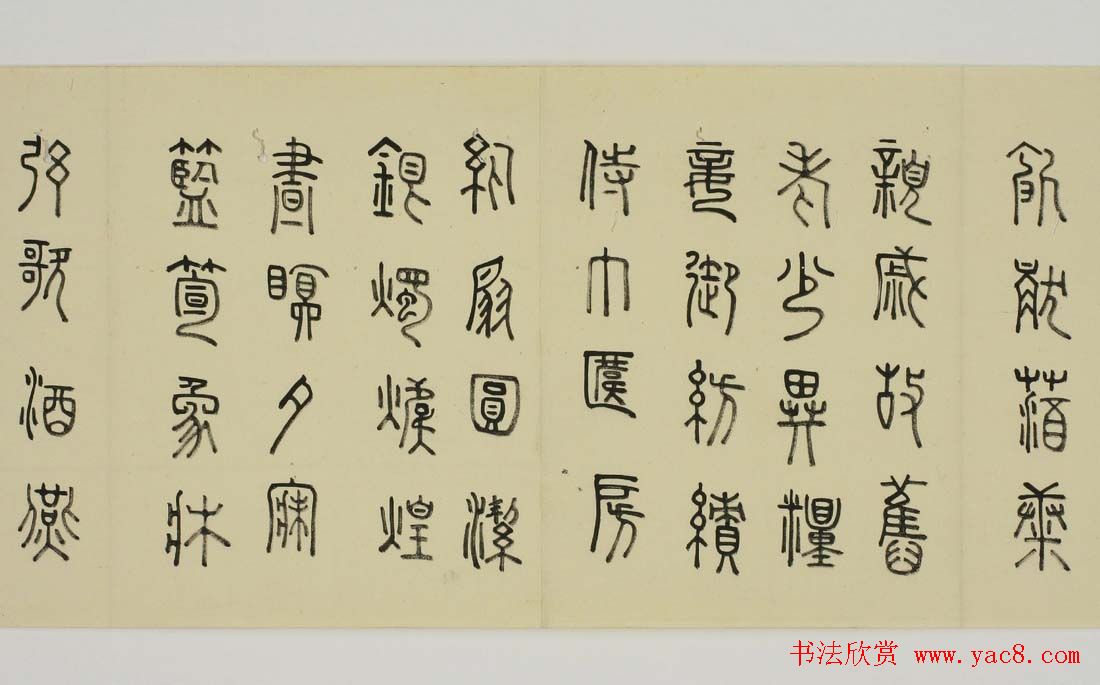 飢厭糟糠
親戚故舊
老少異糧
妾御紡績
侍巾帷房
紈扇圓潔
銀燭煒煌
晝眠夕寐
籃筍象牀
弦歌酒燕
书法欣赏 www.yac8.com